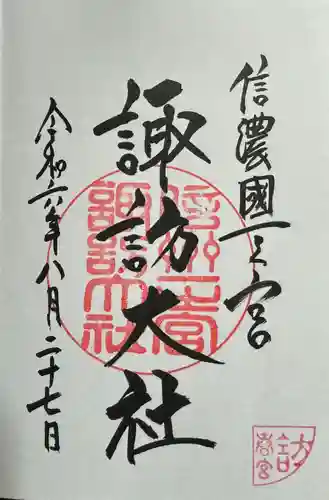 信濃國一之宮
諏訪大社
令和六年八月二十七日
信州一之宮
諏訪大社
諏訪
春宮